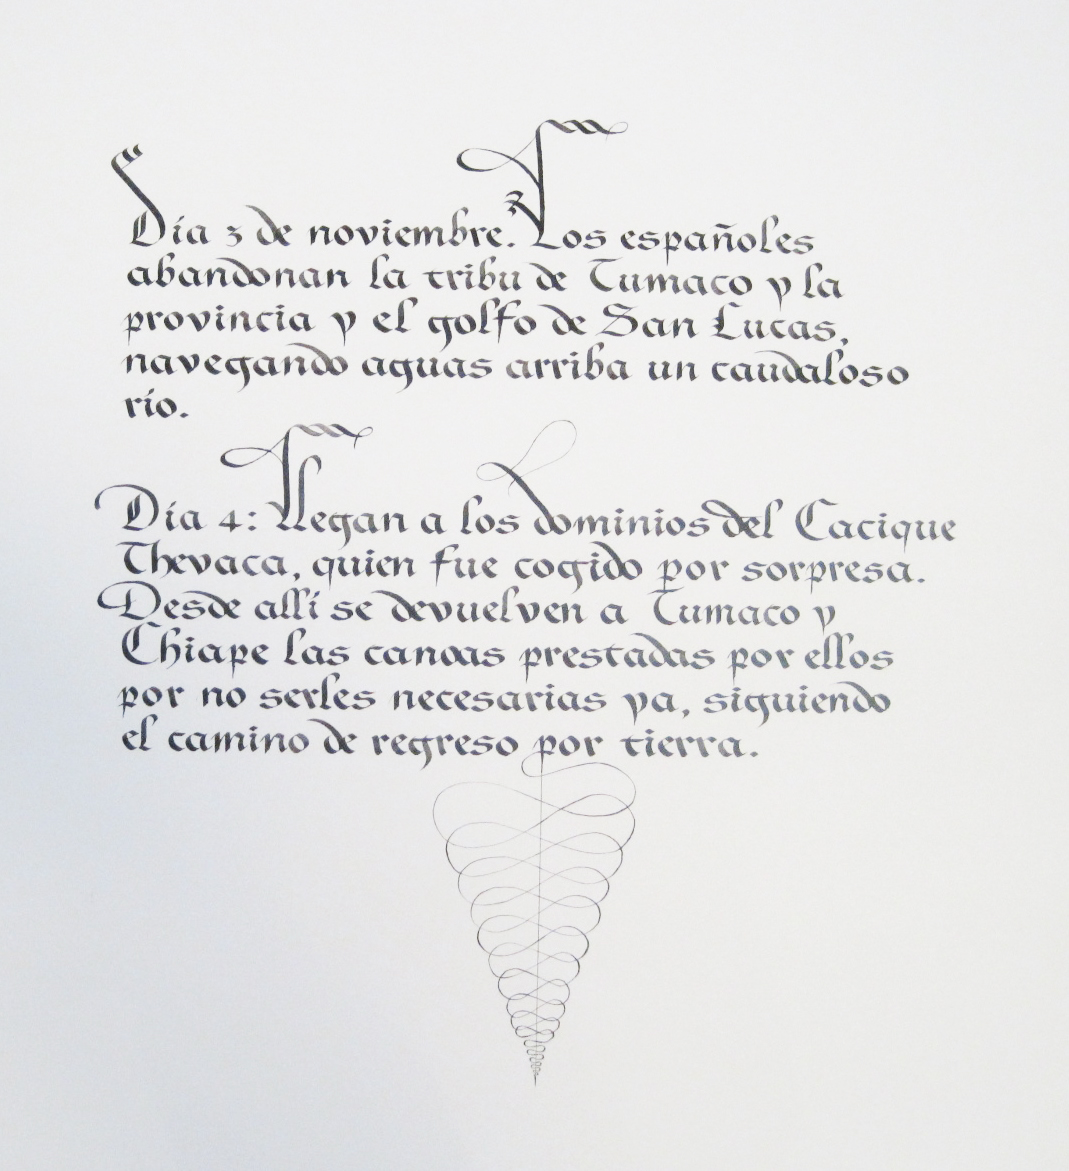 Día 3 de noviembre. Los españoles
abandonan la tribu de Tumaco y la
provincia y el golfo de San Lucas,
navegando aguas arriba un caudaloso
río.
Día 4: Llegan a los dominios del Cacique
Thevaca, quien fue cogido por sorpresa.
Desde allí se devuelven a Tumaco y
Chiape las canoas prestadas por ellos
por no serles necesarias ya, siguiendo
el camino de regreso por tierra.